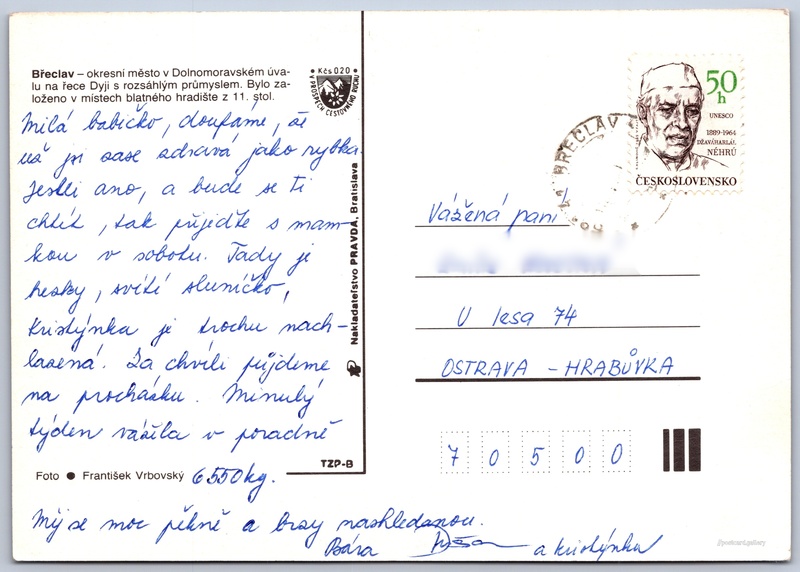 Břeclav – okresní město v Dolnomoravském úva-
lu na řece Dyji s rozsáhlým průmyslem. Bylo za-
loženo v místech blatného hradiště z 11. stol.
Kčs 0,20
V PROSPĚCH CESTOVNÉHO RUCHU
Milá babičko, doufáme, že
už jsi zase zdravá jako rybka.
Jestli ano, a bude se ti
chtít, tak přijeďte s mam-
kou v sobotu. Tady je
hezky, svítí sluníčko,
Kristýnka je trochu nach-
lazená. Za chvíli půjdeme
na procházku. Minulý
týden vážila v poradně
6550kg.
Foto ● František Vrbovský
TZP-B
Měj se moc pěkně a brzy nashledanou.
Bára
a Kristýnka
Nakladateľstvo PRAVDA, Bratislava
BŘECLAV
50
h
UNESCO
1889-1964
DŽAVÁHARLÁL
NÉHRÚ
ČESKOSLOVENSKO
Vážená paní
U lesa 74
OSTRAVA - HRABŮVKA
7 0 5 0 0